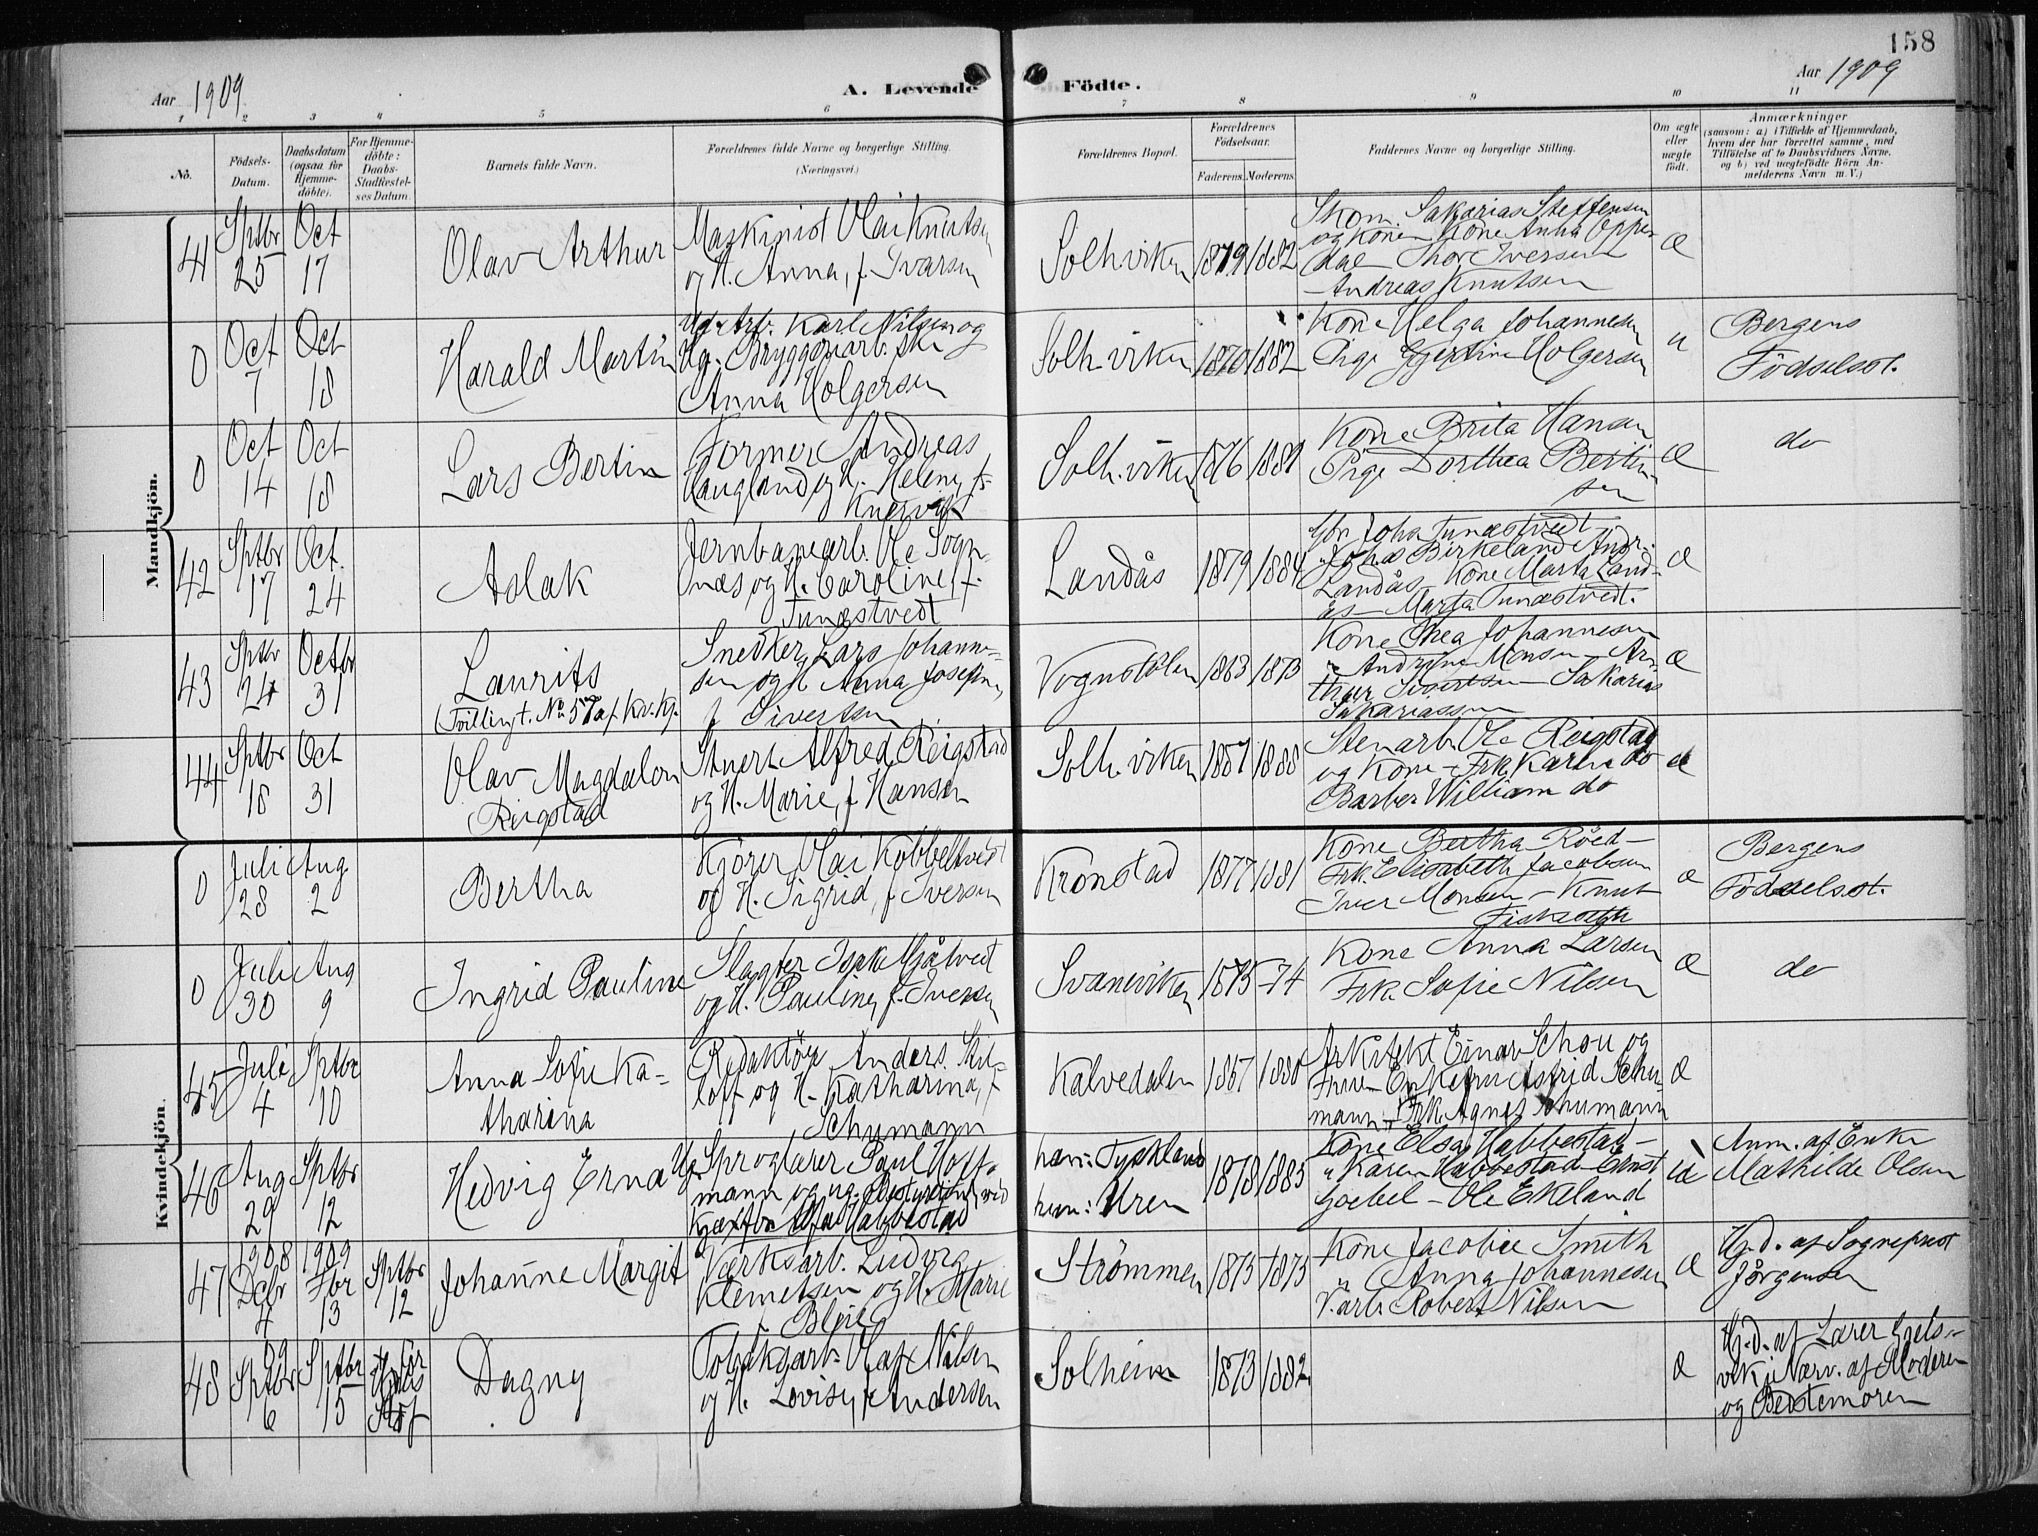 158
Aar 1909
A. Levende Födte.
Aar 1909
1 2 3 4 5 6 7 8 9 10 11
No.
Födsels-Datum.
Daabsdatum (ogsaa for Hjemme-döbte).
For Hjemme-döbte: Daabs-Stadfæstel-ses Datum.
Barnets fulde Navn.
Forældrenes fulde Navne og borgerlige Stilling. (Næringsvei.)
Forældrenes Bopæl.
Forældrenes Födselsaar.
Faderens. Moderens.
Faddernes Navne og borgerlige Stilling.
Om ægte eller uægte födt.
Anmærkninger (saasom: a) i Tilfælde af Hjemmedaab, hvem der har forrettet samme, med Tilföielse af to Daabsvidners Navne. og b) ved uægtefödte Börn An-melderens Navn m.V.)
Mandkjön.
41 Sptbr 25 Oct 17
Olav Arthur
Maskinist Olai Knutsen
og H. Anna, f. Ivarsen
Solhviken 1879 1882
Skom. Sakarias Steffensen
og Kone Kone Anna Opper
dal Thor Iversen
Andreas Knutsen
Æ
0 Oct 7 Oct 18
Harald Martin
Ug. Arb. Karl Nilsen og
Ug. Bryggeriarb.ske
Anna Holgersen
Solh.viken 1870 1882
Kone Helga Johannesen
Pige Gjertine Holgersen
u
Bergens
Födselsst.
0 Oct 14 Oct 18
Lars Bertin
Former Andreas
Haugland og H. Helene, f.
Knersvik
Solh.viken 1876 1881
Kone Brita Hansen
Pige Dorthea Bertin
sen
Æ
do
42 Sptbr 17 Oct. 24
Aslak
Jernbanearb. Ole Sogn-
næs og H. Caroline, f.
Tunæstvedt
Landås 1879 1884
Gbr. Joha Tunæstvedt
Johas Birkeland Andr.
Landås Kone Marta Land-
ås Marta Tunæstvedt.
Æ
43 Sptbr 24 Octbr 31
Laurits
(Tvillingt. No 57 af Kv.kj.
Snedker Lars Johanne-
sen og H Anna Josefine,
f Sivertsen
Vognstölen 1863 1873
Kone Thea Johannesen
" Andrine Monsen Ar-
thur Sivertsen Sakarias
Sakariassen
Æ
44 Sptbr 18 Oct 31
Olav Magdalon
Reigstad
Stuert Alfred Reigstad
og H. Marie, f Hansen
Solh.viken 1887 1888
Stenarb. Ole Reigstad
og Kone Frk. Karla do
Barber William do
Æ
Kvindekjön.
0 Juli 28 Aug 2
Bertha
Kjörer Olai Kobbeltvedt
og H. Sigrid, f. Iversen
Kronstad 1877 1881
Kone Bertha Röed
Frk. Elisabeth Jacobsen
Iver Monsen Knut
Æ
Bergens
Födselsst.
0 Juli 30 Aug 9
Ingrid Pauline
Slagter Isak Mjåtvedt
og H. Pauline, f. Iversen
Svaneviken 1875 -74
Kone Anna Larsen
Frk. Sofie Nilsen
Æ
do
45 Juli 4 Sptbr 10
Anna Sofie Ka-
tharina
Redaktör Anders Ski-
loff og H. Katharina, f
Schumann
Kalvedalen 1867 1880
Arkitekt Einar Schou og
Frue Enkefru Astrid Schu
mann Frk. Agnes Schumann
Æ
46 Aug 29 Sptbr 12
Hedvig Erna
Ug. Sproglærer Paul Hoff
mann og ug.
Habbestad
han: Tyskland
hun: Uren
1878 1885
Kone Elsa Habbestad
" Karen Habbestad Ernst
Goebel Ole Ekeland
Anm. af Enke
Mathilde Olsen
47 1908 Decbr 4 1909 Fbr 13 Sptbr 12
Johanne Margit
Værksarb. Ludvig
Klemetsen og H. Marie
Strömmen 1875 1873
Kone Jacobie Smith
" Anna Johannesen
V.arb. Robert Nilsen
Æ
Hj.d. af Sogneprest
Jörgensen
48 09 Sptbr 6 Sptbr 15
Dagny
Fabrikarb. Olaf Nilsen
og H. Lovise, f Andersen
Solheim 1873 1882
Æ
Hj.d. af Lærer Gjels-
vik i Nærv. af Moderen
og Bedstemoren